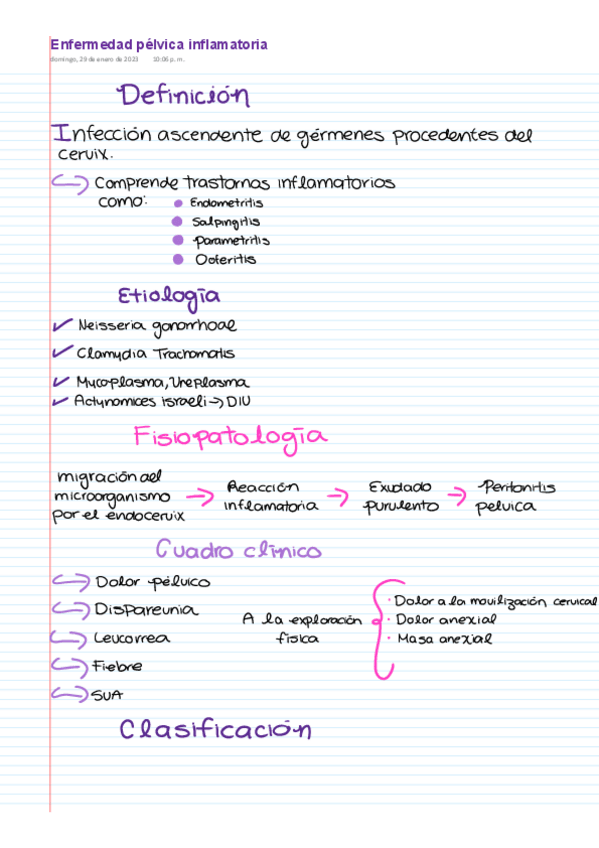 Enfermedad pélvica inflamatoria
domingo, 29 de enero de 2023 10:06 p. m.
Definición
Infección ascendente de gérmenes procedentes del
cervix.
Comprende trastornos inflamatorios
como:
Endometritis
Salpingitis
Parametritis
Ooferitis
Etiología
✓ Neisseria gonorrhoae
✓ Clamydia Trachomatis
✓ Mycoplasma, Ureplasma
✓ Actynomices israeli → DIU
Fisiopatología
migración del
microorganismo
por el endocervix
→ Reacción
inflamatoria
→ Exudado
purulento
→ Peritonitis
pelvica
Cuadro clínico
Dolor pélvico
Dispareunia
Leucorrea
Fiebre
SUA
A la exploración
física
· Dolor a la movilización cervical
· Dolor anexial
· Masa anexial
Clasificación